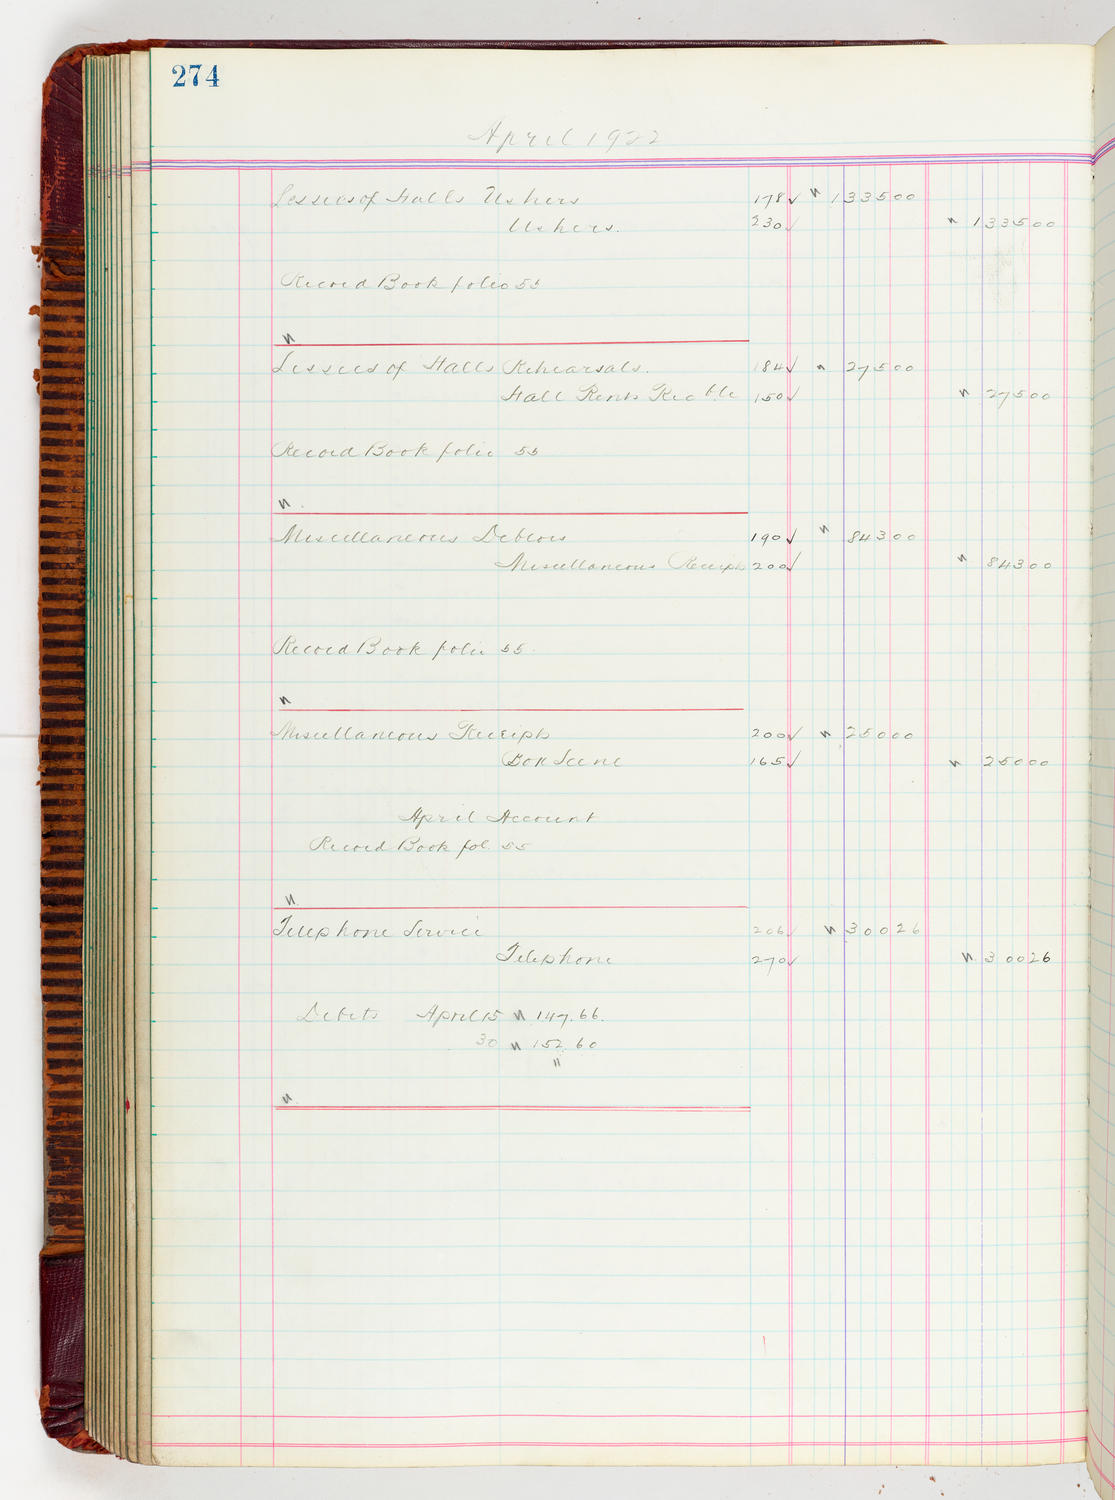 274
April 1922
Lessees of Halls Ushers 178✓ 133500
Ushers. 230✓ 133500
Record Book folio 55
Lessees of Halls Rehearsals. 184✓ 27500
Hall Rents Rec ble 150✓ 27500
Record Book folio 55
Miscellaneous Debtors 190✓ 84300
Miscellaneous Receipts 200✓ 84300
Record Book folio 55
Miscellaneous Receipts 200✓ 25000
Box Scene 165✓ 25000
April Account
Record Book fol. 55
Telephone Service 206✓ 30026
Telephone 270✓ 30026
Debits April 15 147.66.
30 152.60
"